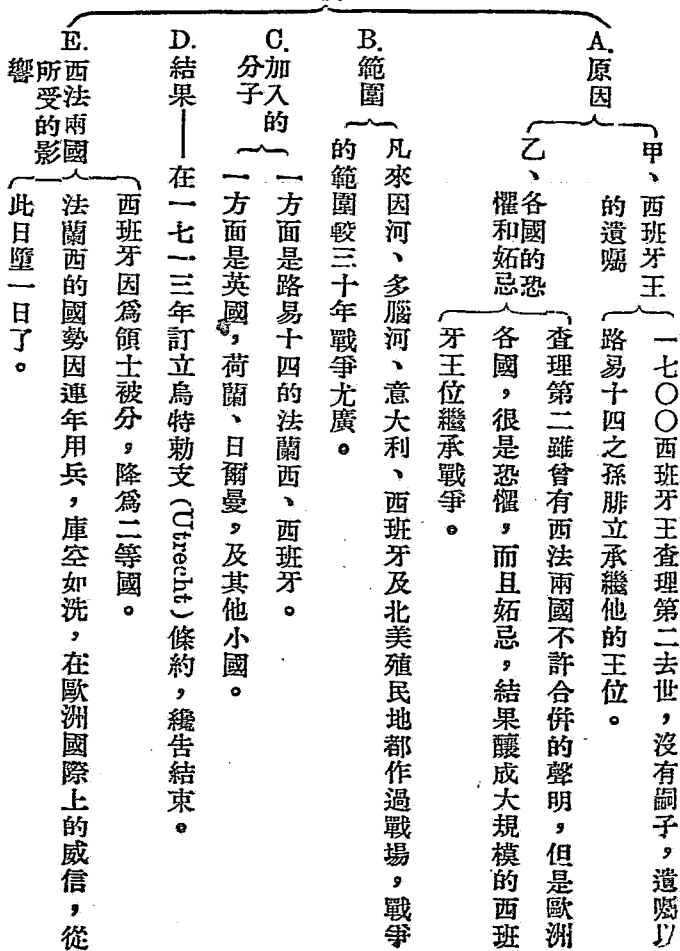 A. 原因
甲、西班牙王
的遺囑
一七〇〇西班牙王查理第二去世，沒有嗣子，遺囑以
路易十四之孫腓立承繼他的王位。
乙、各國的恐
懼和妬忌
查理第二雖曾有西法兩國不許合併的聲明，但是歐洲
各國，很是恐懼，而且妬忌，結果釀成大規模的西班
牙王位繼承戰爭。
B. 範圍
凡來因河、多腦河、意大利、西班牙及北美殖民地都作過戰場，戰爭
的範圍較三十年戰爭尤廣。
C. 加入的
分子
一方面是路易十四的法蘭西、西班牙。
一方面是英國，荷蘭、日爾曼，及其他小國。
D. 結果——在一七一三年訂立烏特勒支(Utrecht)條約，纔告結束。
E. 西法兩國
所受的影
響
西班牙因爲領土被分，降爲二等國。
法蘭西的國勢因連年用兵，庫空如洗，在歐洲國際上的威信，從
此日墮一日了。